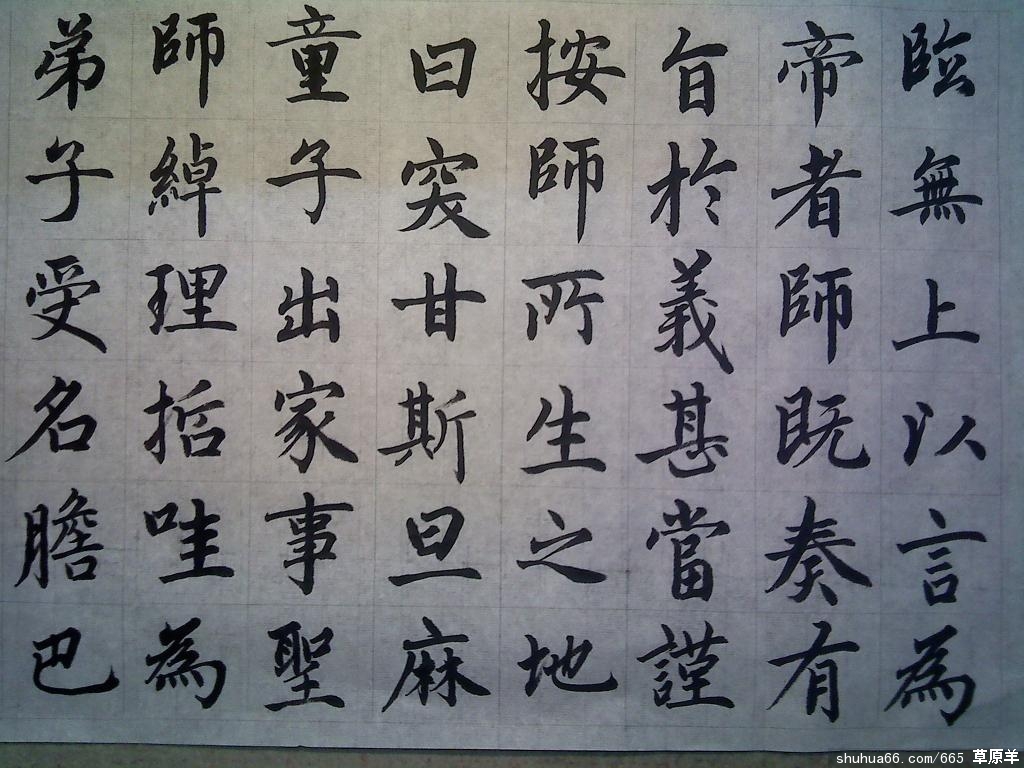 臨無上以言為
帝者師既奏有
旨於義甚當謹
按師所生之地
曰突甘斯旦麻
童子出家事聖
師綽理哲哇為
弟子受名膽巴
shuhua66.com/665 草原羊